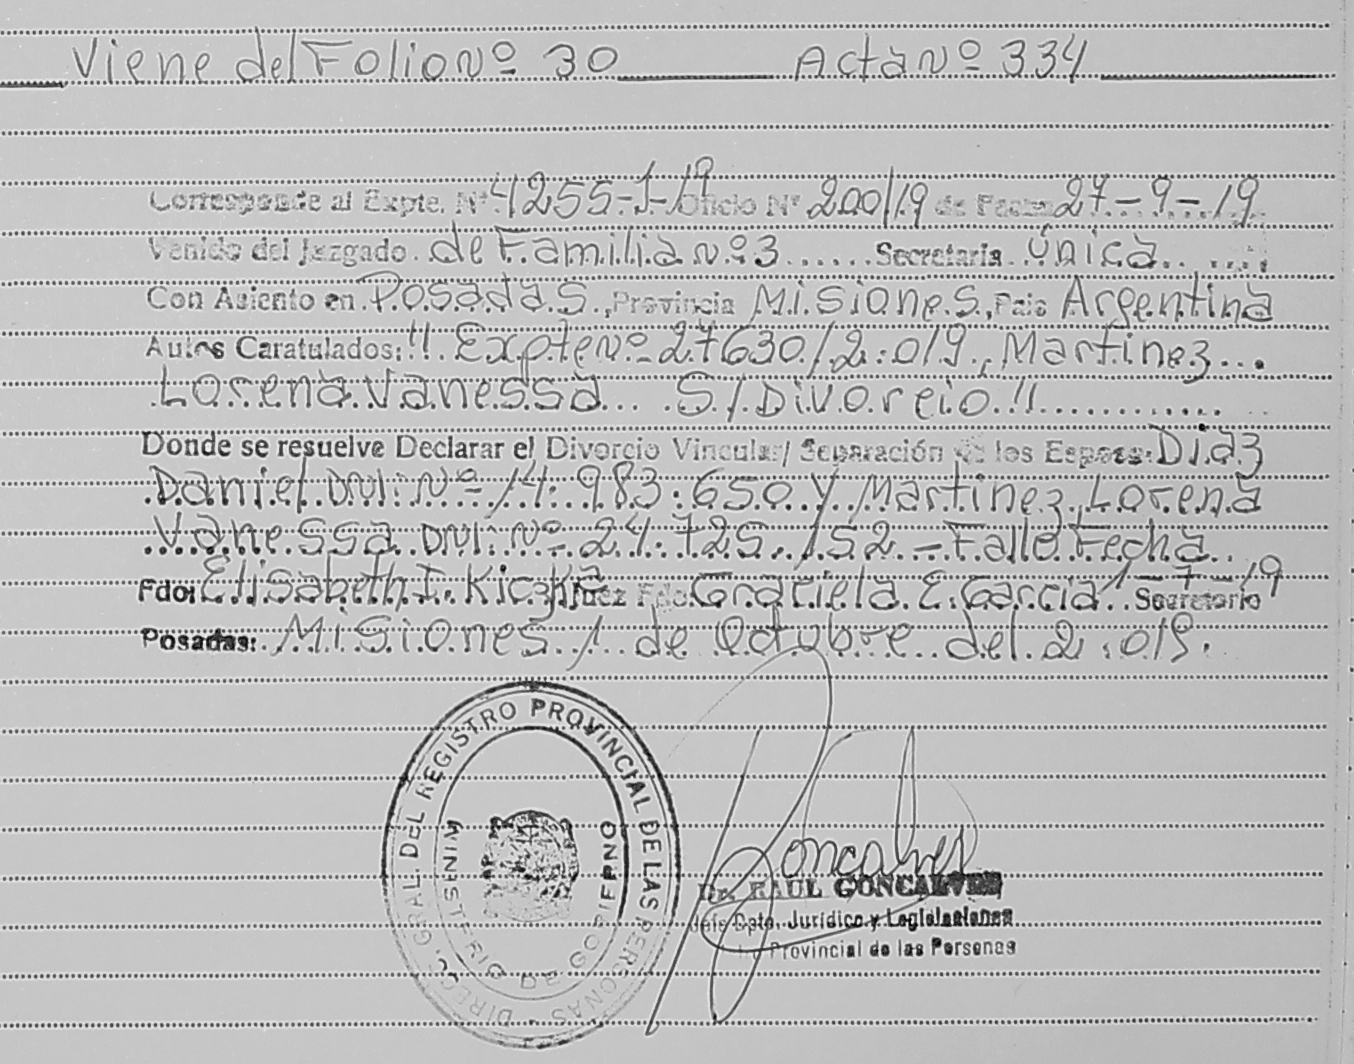 Viene del Folio Nº 30 Acta Nº 334
Corresponde al Expte. Nº 4255-J-19 Oficio Nº 200/19 de Fecha 27-9-19
Venido del Juzgado de Familia Nº 3 Secretaría Única
Con Asiento en Posadas, Provincia Misiones, País Argentina
Autos Caratulados: "Expte Nº 27630/2.019, Martinez
Lorena Vanessa S/Divorcio"
Donde se resuelve Declarar el Divorcio Vincular/ Separación de los Esposos: Diaz
Daniel DNI: Nº 14.983.650 y Martinez, Lorena
Vanessa DNI: Nº 24.725.152 - Fallo Fecha
Fdo: Elisabeth I. Kiczka Juez Fdo: Graciela E. Garcia 1-7-19 Secretario
Posadas: Misiones 1 de Octubre del 2.019.
DIRECC. GRAL. DEL REGISTRO PROVINCIAL DE LAS PERSONAS -
MINISTERIO DE GOBIERNO
Goncalves
Dr. RAUL GONCALVES
Jefe Dpto. Jurídico y Legislaciones
Provincial de las Personas